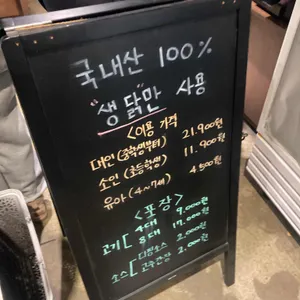 국내산 100%
"생닭만" 사용
<이용 가격
대인(중학생부터) 21.900원
소인(초등학생) 11.900원
유아(4~7세) 4.500원
<포장>
고기 4대 9.000원
8대 17.000원
소스 디핑소스 2.000원
고추간장 2.000원